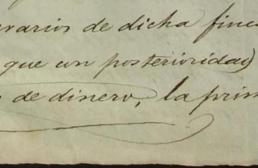 erarios de dicha finc
que con posterioridad
de dinero, la prim